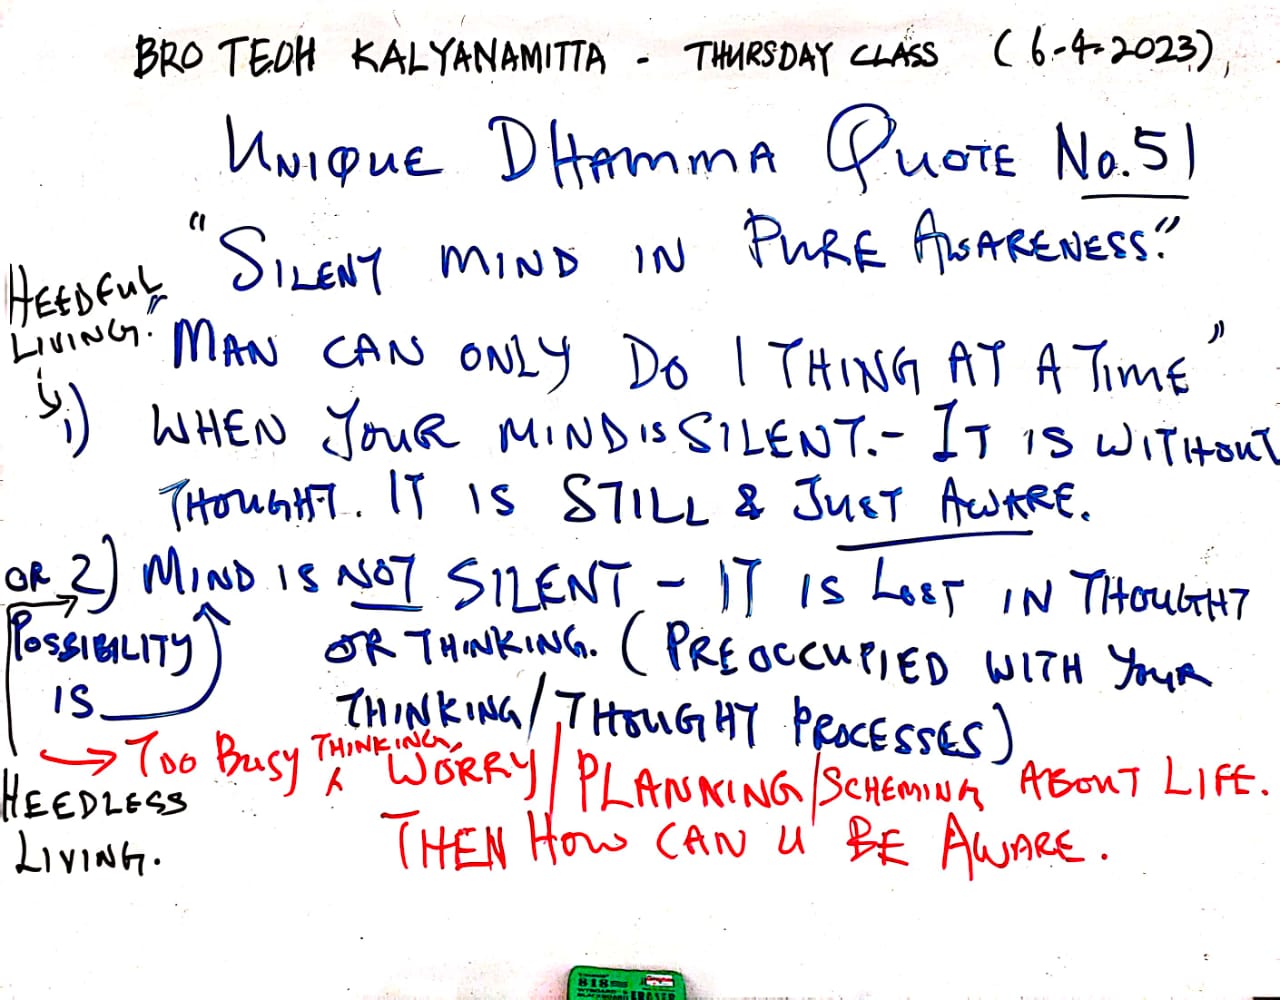 BRO TEOH KALYANAMITTA - THURSDAY CLASS (6-4-2023),
UNIQUE DHAMMA QUOTE No.51
"SILENT MIND IN PURE AWARENESS."
HEEDFUL
LIVING.
"MAN CAN ONLY DO 1 THING AT A TIME"
1) WHEN YOUR MIND IS SILENT.- IT IS WITHOUT
THOUGHT. IT IS STILL & JUST AWARE.
OR 2) MIND IS NOT SILENT - IT IS LOST IN THOUGHT
POSSIBILITY
IS
OR THINKING. (PREOCCUPIED WITH YOUR
THINKING/THOUGHT PROCESSES)
→ TOO BUSY THINKING, WORRY/PLANNING/SCHEMING ABOUT LIFE.
HEEDLESS
LIVING.
THEN HOW CAN U BE AWARE.
818
ERASER